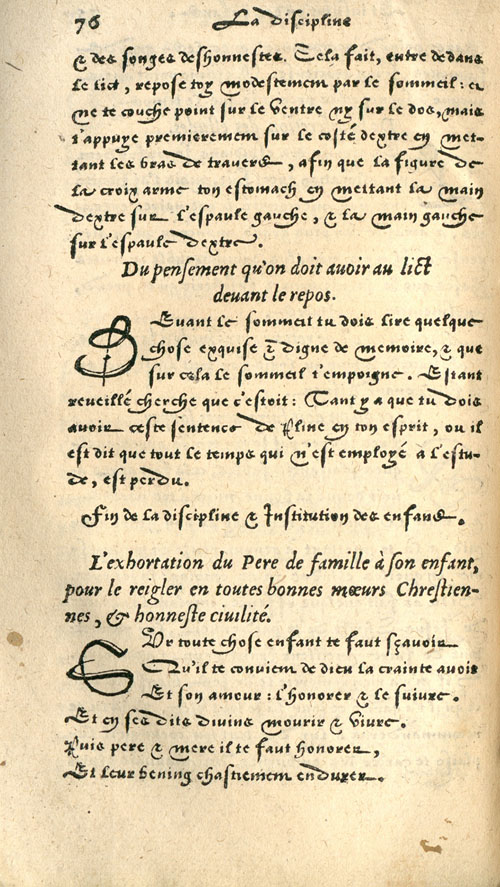 76 La discipline
& des songes deshonnestes. Cela fait, entre dedans
le lict, repose toy modestement par le sommeil: et
ne te couche point sur le ventre ny sur le dos, mais
t'appuye premierement sur le costé dextre en met-
tant les bras de travers, afin que la figure de
la croix arme ton estomach en mettant la main
dextre sur l'espaule gauche, & la main gauche
sur l'espaule dextre.
Du pensement qu'on doit avoir au lict
devant le repos.
DEvant le sommeil tu dois lire quelque
chose exquise & digne de memoire, & que
sur cela le sommeil t'empoigne. Estant
reveillé cherche que c'estoit: Tant y a que tu dois
avoir ceste sentence de Pline en ton esprit, ou il
est dit que tout le temps qui n'est employé à l'estu-
de, est perdu.
Fin de la discipline & Institution des enfans.
L'exhortation du Pere de famille à son enfant,
pour le reigler en toutes bonnes mœurs Chrestien-
nes, & honneste civilité.
SVr toute chose enfant te faut sçavoir
Qu'il te convient de dieu la crainte avoir
Et son amour: l'honorer & le suivre.
Et en ses dits divins mourir & vivre.
Puis pere & mere il te faut honorer,
Et leur bening chastiement endurer.